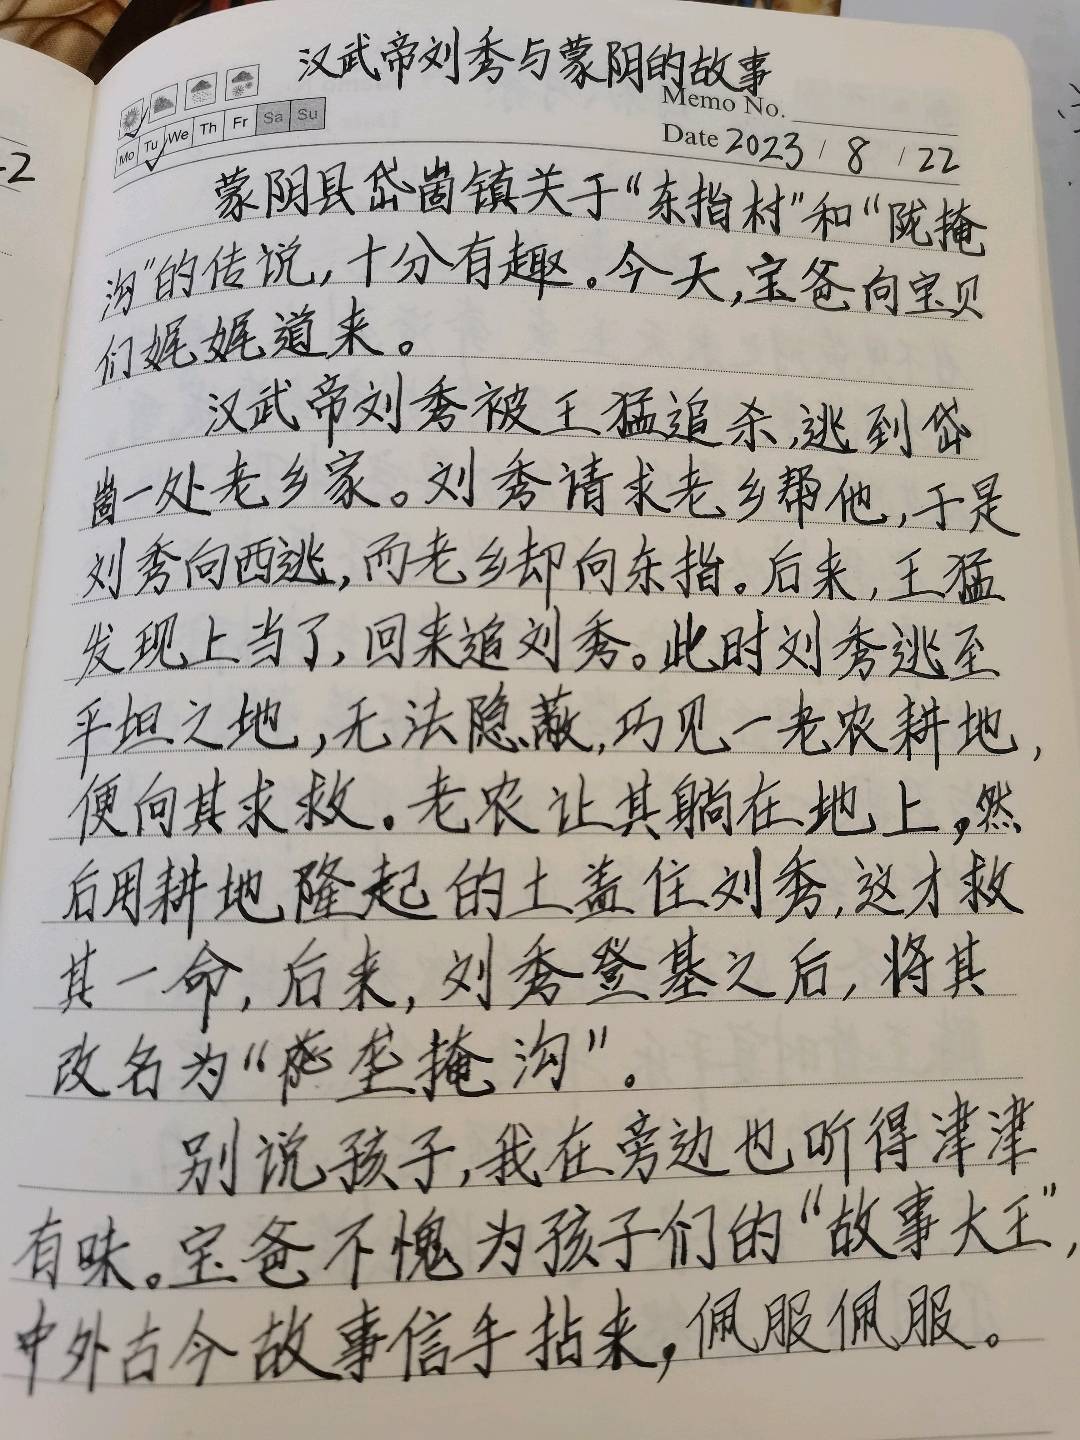 汉武帝刘秀与蒙阴的故事
Memo No.
Mo Tu We Th Fr Sa Su
Date 2023 / 8 / 22
蒙阴县岱崮镇关于“东指村”和“陇掩
沟”的传说，十分有趣。今天，宝爸向宝贝
们娓娓道来。
汉武帝刘秀被王猛追杀，逃到岱
崮一处老乡家。刘秀请求老乡帮他，于是
刘秀向西逃，而老乡却向东指。后来，王猛
发现上当了，回来追刘秀。此时刘秀逃至
平坦之地，无法隐蔽，巧见一老农耕地，
便向其求救。老农让其躺在地上，然
后用耕地隆起的土盖住刘秀，这才救
其一命，后来，刘秀登基之后，将其
改名为“垄掩沟”。
别说孩子，我在旁边也听得津津
有味。宝爸不愧为孩子们的“故事大王”，
中外古今故事信手拈来，佩服佩服。